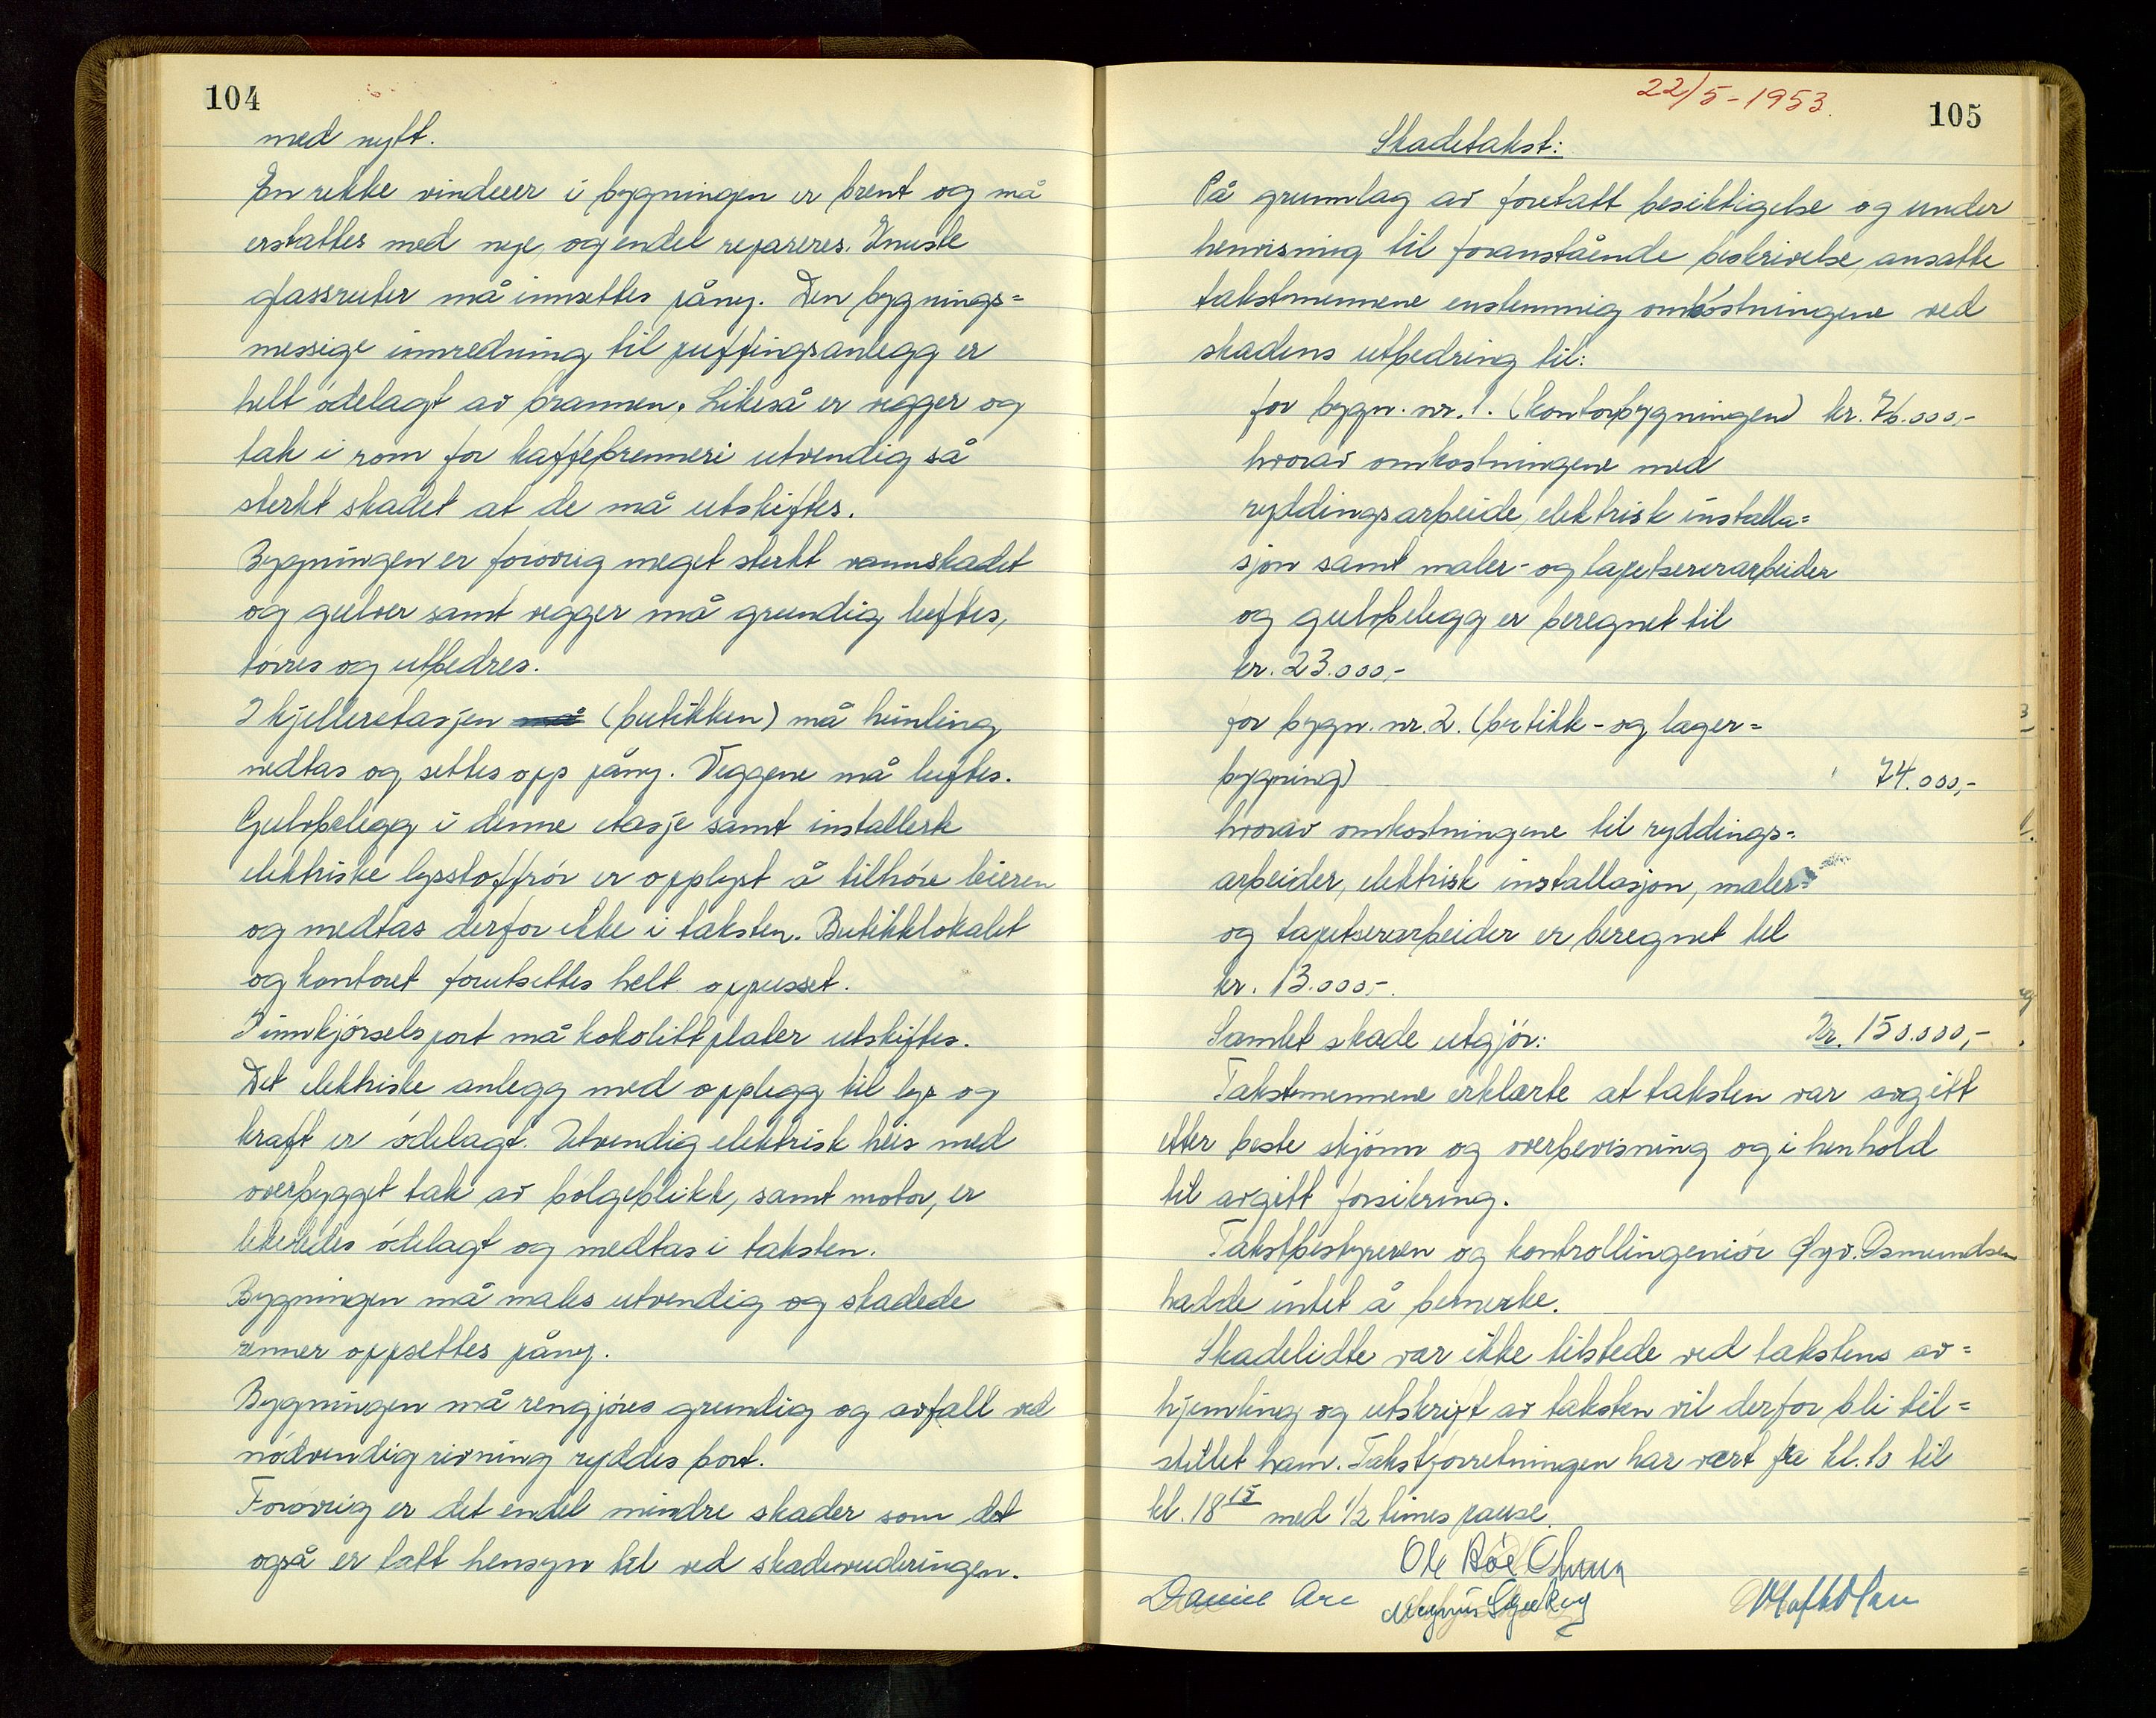 104
med nytt.
En rekke vinduer i bygningen er brent og må
erstattes med nye, og endel repareres. Knuste
glassruter må innsettes påny. Den bygnings=
messige innredning til puffingsanlegg er
helt ödelagt av brannen. Likeså er vegger og
tak i rom for kaffebrenneri utvendig så
sterkt skadet at de må utskiftes.
Bygningen er forövrig meget sterkt vannskadet
og gulver samt vegger må grundig luftes,
törres og utbedres.
I kjelleretasjen må (butikken) må himling
nedtas og settes opp påny. Veggene må luftes.
Gulvbelegg i denne etasje samt installerte
elektriske lysstoffrör er opplyst å tilhöre leieren
og medtas derfor ikke i taksten. Butikklokalet
og kontoret forutsettes helt oppusset.
I innkjörselsport må kokolittplater utskiftes.
Det elektriske anlegg med opplegg til lys og
kraft er ödelagt. Utvendig elektrisk heis med
overbygget tak av bölgeblikk, samt motor, er
likeledes ödelagt og medtas i taksten.
Bygningen må males utvendig og skadede
renner oppsettes påny.
Bygningen må rengjöres grundig og avfall ved
nödvendig rivning ryddes bort.
Forövrig er det endel mindre skader som det
også er tatt hensyn til ved skadevurderingen.
22/5-1953.
105
Skadetakst:
På grunnlag av foretatt besiktigelse og under
henvisning til foranstående beskrivelse, ansatte
takstmennene enstemmig omkostningene ved
skadens utbedring til:
for bygn. nr. 1. (kontorbygningen) kr. 76.000,-
hvorav omkostningene med
ryddingsarbeide, elektrisk installa=
sjon samt maler- og tapetsererarbeider
og gulvbelegg er beregnet til
kr. 23.000,-
for bygn. nr. 2. (butikk- og lager=
bygning) 74.000,-
hvorav omkostningene til ryddings=
arbeider, elektrisk installasjon, maler=
og tapetsererarbeider er beregnet til
kr. 13.000,-.
Samlet skade utgjör: Kr. 150.000,-
Takstmennene erklærte at taksten var avgitt
etter beste skjönn og overbevisning og i henhold
til avgitt forsikring.
Takstbestyreren og kontrollingeniör Öyv. Osmundsen
hadde intet å bemerke.
Skadelidte var ikke tilstede ved takstens av=
hjemling og utskrift av taksten vil derfor bli til=
stillet ham. Takstforretningen har vært fra kl. 10 til
kl. 18 15 med 1/2 times pause.
Ole
Magnus